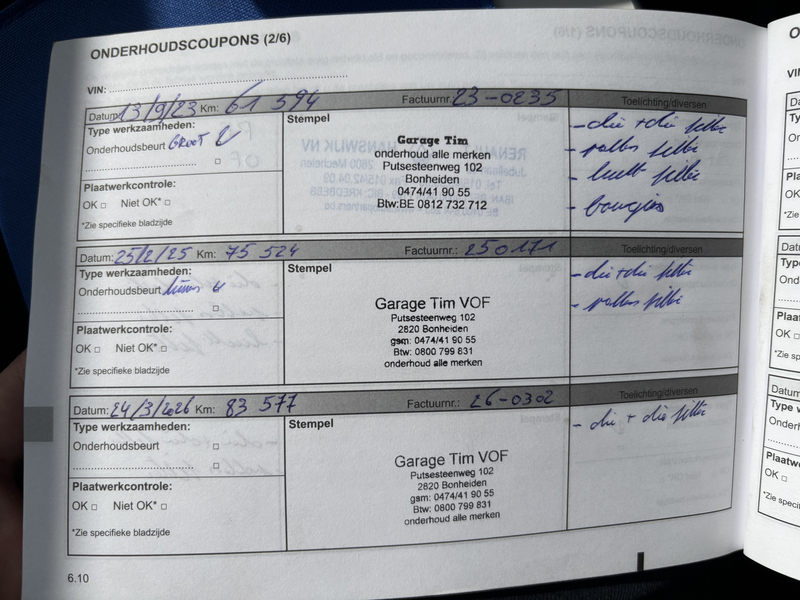 ONDERHOUDSCOUPONS (2/6)
VIN:
Datum: 13/9/23 Km: 61 594 Factuurnr. 23-0235 Toelichting/diversen
Type werkzaamheden:
Onderhoudsbeurt Groot
Plaatwerkcontrole:
OK □ Niet OK* □
*Zie specifieke bladzijde
Stempel
Garage Tim
onderhoud alle merken
Putsesteenweg 102
Bonheiden
0474/41 90 55
Btw:BE 0812 732 712
- olie + olie filter
- pollen filter
- lucht filter
- bougies
Datum: 25/2/25 Km: 75 524 Factuurnr.: 250171 Toelichting/diversen
Type werkzaamheden:
Onderhoudsbeurt
Plaatwerkcontrole:
OK □ Niet OK* □
*Zie specifieke bladzijde
Stempel
Garage Tim VOF
Putsesteenweg 102
2820 Bonheiden
gsm: 0474/41 90 55
Btw: 0800 799 831
onderhoud alle merken
- olie + olie filter
- pollen filter
Datum: 24/3/2026 Km: 83 577 Factuurnr.: 26-0302 Toelichting/diversen
Type werkzaamheden:
Onderhoudsbeurt □
Plaatwerkcontrole:
OK □ Niet OK* □
*Zie specifieke bladzijde
Stempel
Garage Tim VOF
Putsesteenweg 102
2820 Bonheiden
gsm: 0474/41 90 55
Btw: 0800 799 831
onderhoud alle merken
- olie + olie filter
6.10